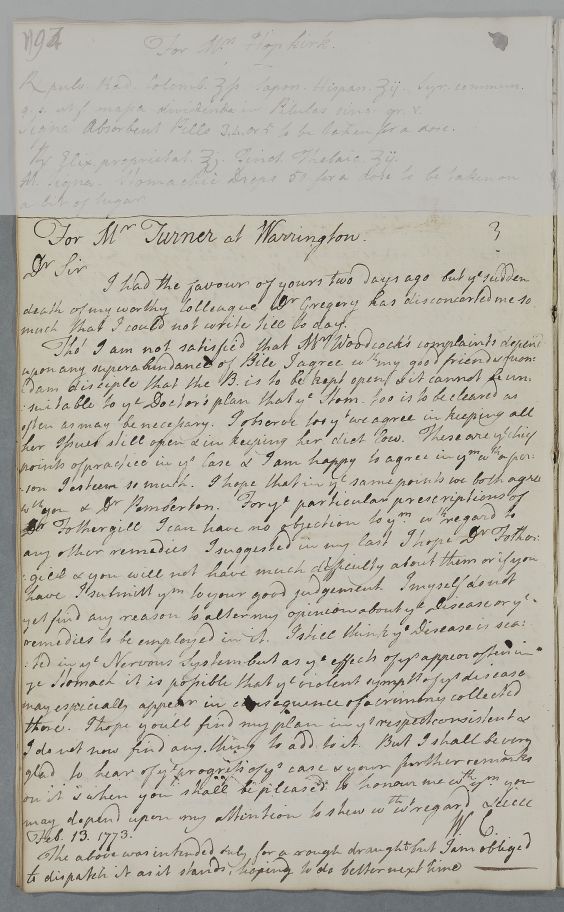 For Mrs Hopkirk.
R pulv. Rad. Colomb. ʒß Sapon. Hispan. ʒij. Syr. commun.
q.s. ut f. massa dividenda in Pilulas sing. gr. v.
Signa Absorbent Pills 3, 4, or 5 to be taken for a dose.
R Elix. proprietat. ʒj. Tinct. Thebaic. ʒij.
M. signa. Stomachic Drops 50 for a dose to be taken on
a bit of sugar
For Mr Turner at Warrington. 3
Dr Sir
I had the favour of yours two days ago but ye sudden
death of my worthy Colleague Dr Gregory has disconcerted me so
much that I could not write till to day.
Tho' I am not satisfied that Mrs Woodcock's complaints depend
upon any superabundance of Bile I agree wth my good friend & quon:
:dam disciple that the B. is to be kept open, & it cannot be un:
:suitable to ye Doctor's plan that ye Stom. too is to be cleared as
often as may be necessary. I observe too yt we agree in keeping all
her Issues still open & in keeping her diet low. These are ye chief
points of practice in ye Case & I am happy to agree in ym wth a per:
:son I esteem so much. I hope that in ye same points we both agree
wth you & Dr Pemberton. For ye particular prescriptions of
Dr Fothergill I can have no objection to ym. wth regard to
any other remedies I suggested in my last I hope Dr Fother:
:gill & you will not have much difficulty about them or if you
have I submitt ym to your good judgement. I myself do not
yet find any reason to alter my opinion about ye Disease or ye
remedies to be employed in it. I still think ye Disease is sea:
:ted in ye Nervous System but as ye effects of yt appear often in
ye Stomach it is possible that ye violent sympts of ye disease
may especially appear in consequence of acrimony collected
there. I hope you'll find my plan in yt respect consistent &
I do not now find any thing to add to it. But I shall be very
glad to hear of ye progress of ye case & your further remarks
on it & when you shall be pleased to honour me wth ym you
may depend upon my attention to shew wth wt regard &c
W. C.
Feb. 13. 1773.
The above was intended only for a rough draught but I am obliged
to dispatch it as it stands, hoping to do better next time